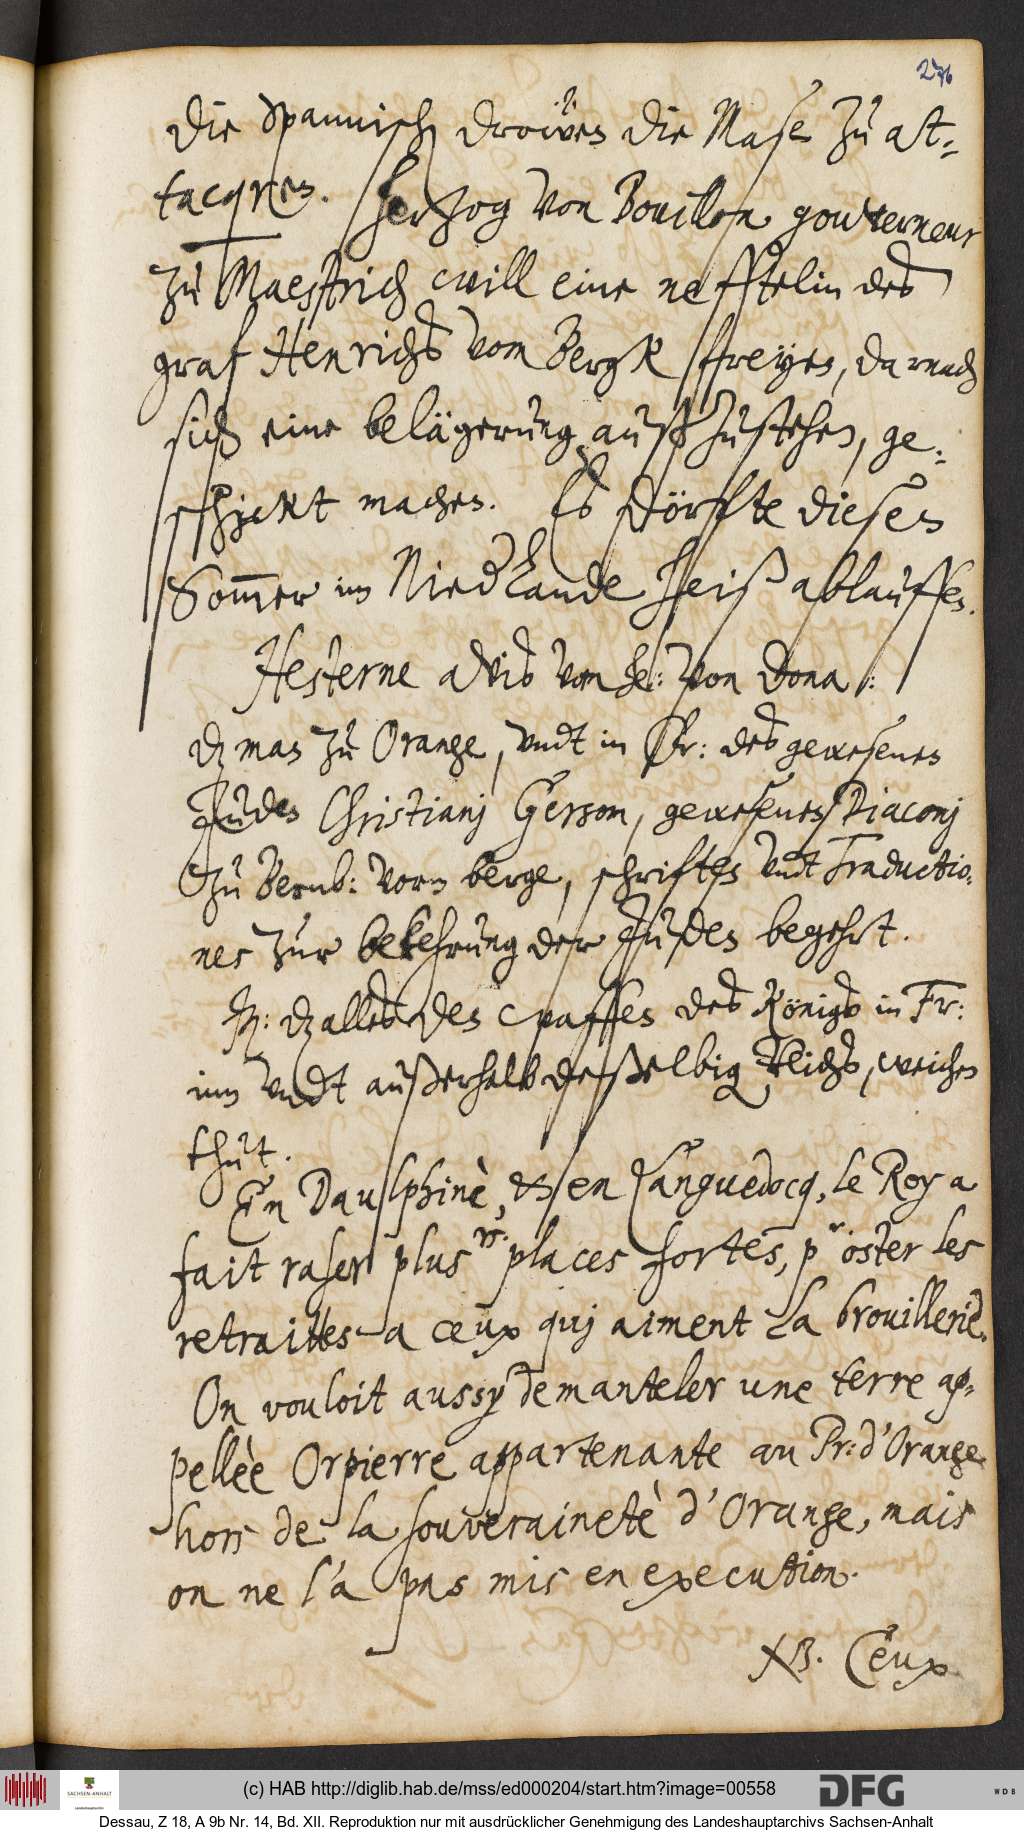 276
die Spannisch droẅen die Mase zu at-
tacqren. Herzog von Bouillon gouverneur
zu Maestrich will eine nefftelin des
graf Henrichs vom Bergk freyen, darnach
sich eine belägerung außzustehen, ge-
schickt machen. Es dörffte diesen
Sommer im Niedlande heiß ablauffen.
Hesterne avis von he: von Dona:
dz man zu Orange, undt in Fr: des gewesenen
Juden Christianj Gerson, gewesenen Diaconj
zu Bernb: vorm berge, schriften undt Traductio-
nes zur bekehrung der Juden begehrt.
It: dz alles den waffen des Königs in Fr:
inn undt außerhalb deßelbig Reichs, weichen
thut.
En Daulphinè, & en Languedocq, le Roy a
fait raser plusrs. places fortes, pr öster les
retraittes a ceux quj aiment la brouillerie.
On vouloit aussy demanteler une terre ap-
pellèe Orpierre appartenante au Pr: d'Orange
hors de la souverainetè d'Orange, mais
on ne l'a pas mis en execution.
XB. Ceux
SACHSEN-ANHALT
Landeshauptarchiv
(c) HAB http://diglib.hab.de/mss/ed000204/start.htm?image=00558
DFG
WDB
Dessau, Z 18, A 9b Nr. 14, Bd. XII. Reproduktion nur mit ausdrücklicher Genehmigung des Landeshauptarchivs Sachsen-Anhalt